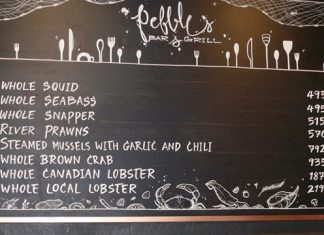 Pebbles
BAR & GRILL
WHOLE SQUID 495
WHOLE SEABASS 495
WHOLE SNAPPER 515
RIVER PRAWNS 570
STEAMED MUSSELS WITH GARLIC AND CHILI 792
WHOLE BROWN CRAB 935
WHOLE CANADIAN LOBSTER 187
WHOLE LOCAL LOBSTER 217